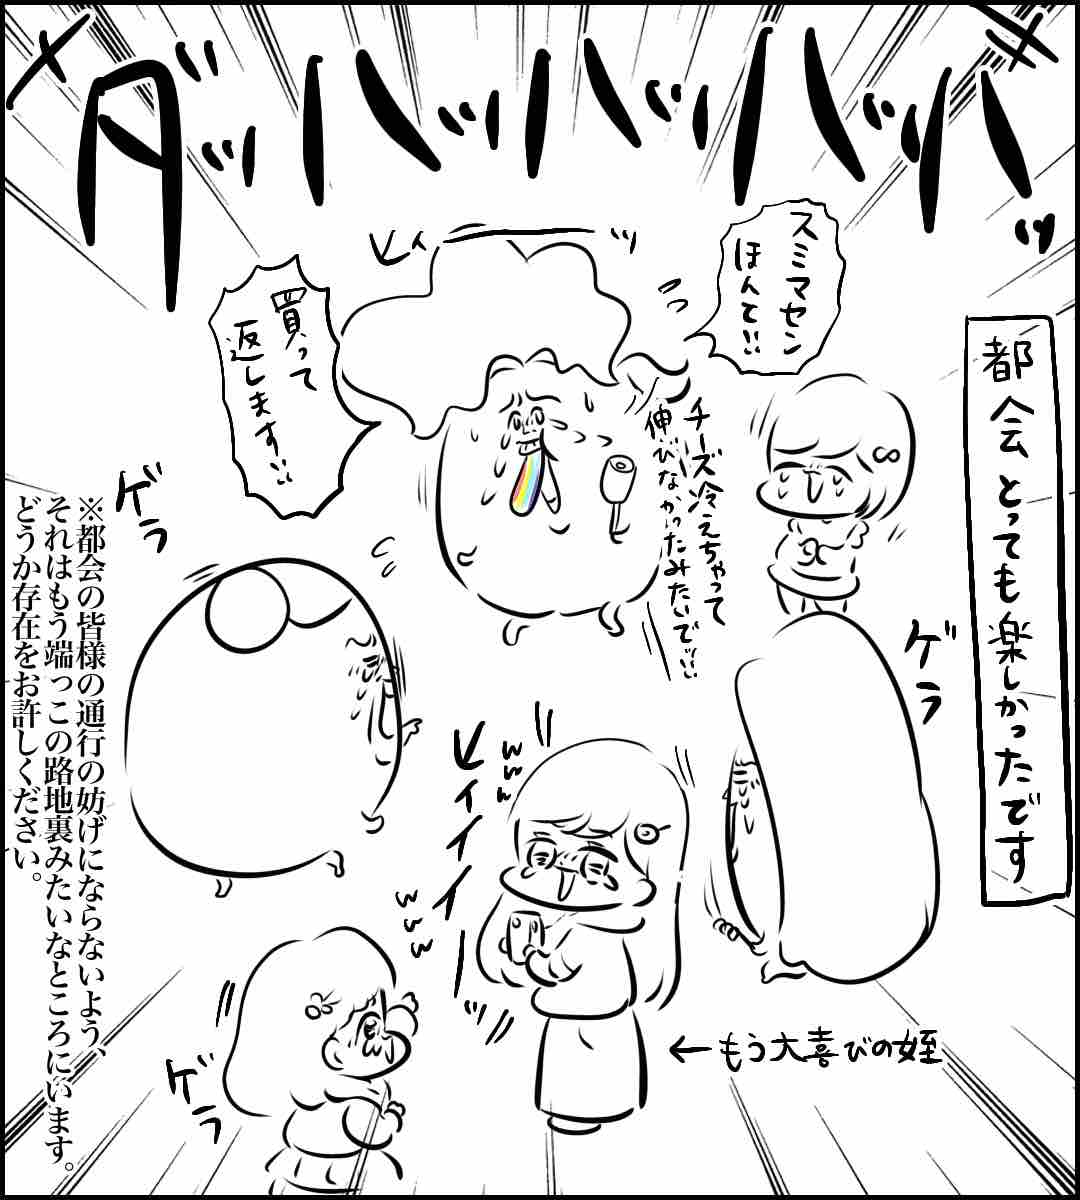 ダッハッハッハッハッ
スミマセン
ほんと!!
都会とっても楽しかったです
買って
返します!!
チーズ冷えちゃって
伸びなかったみたいで!!
ゲラ
ゲラ
www
www
←もう大喜びの姪
ゲラ
※都会の皆様の通行の妨げにならないよう、
それはもう端っこの路地裏みたいなところにいます。
どうか存在をお許しください。